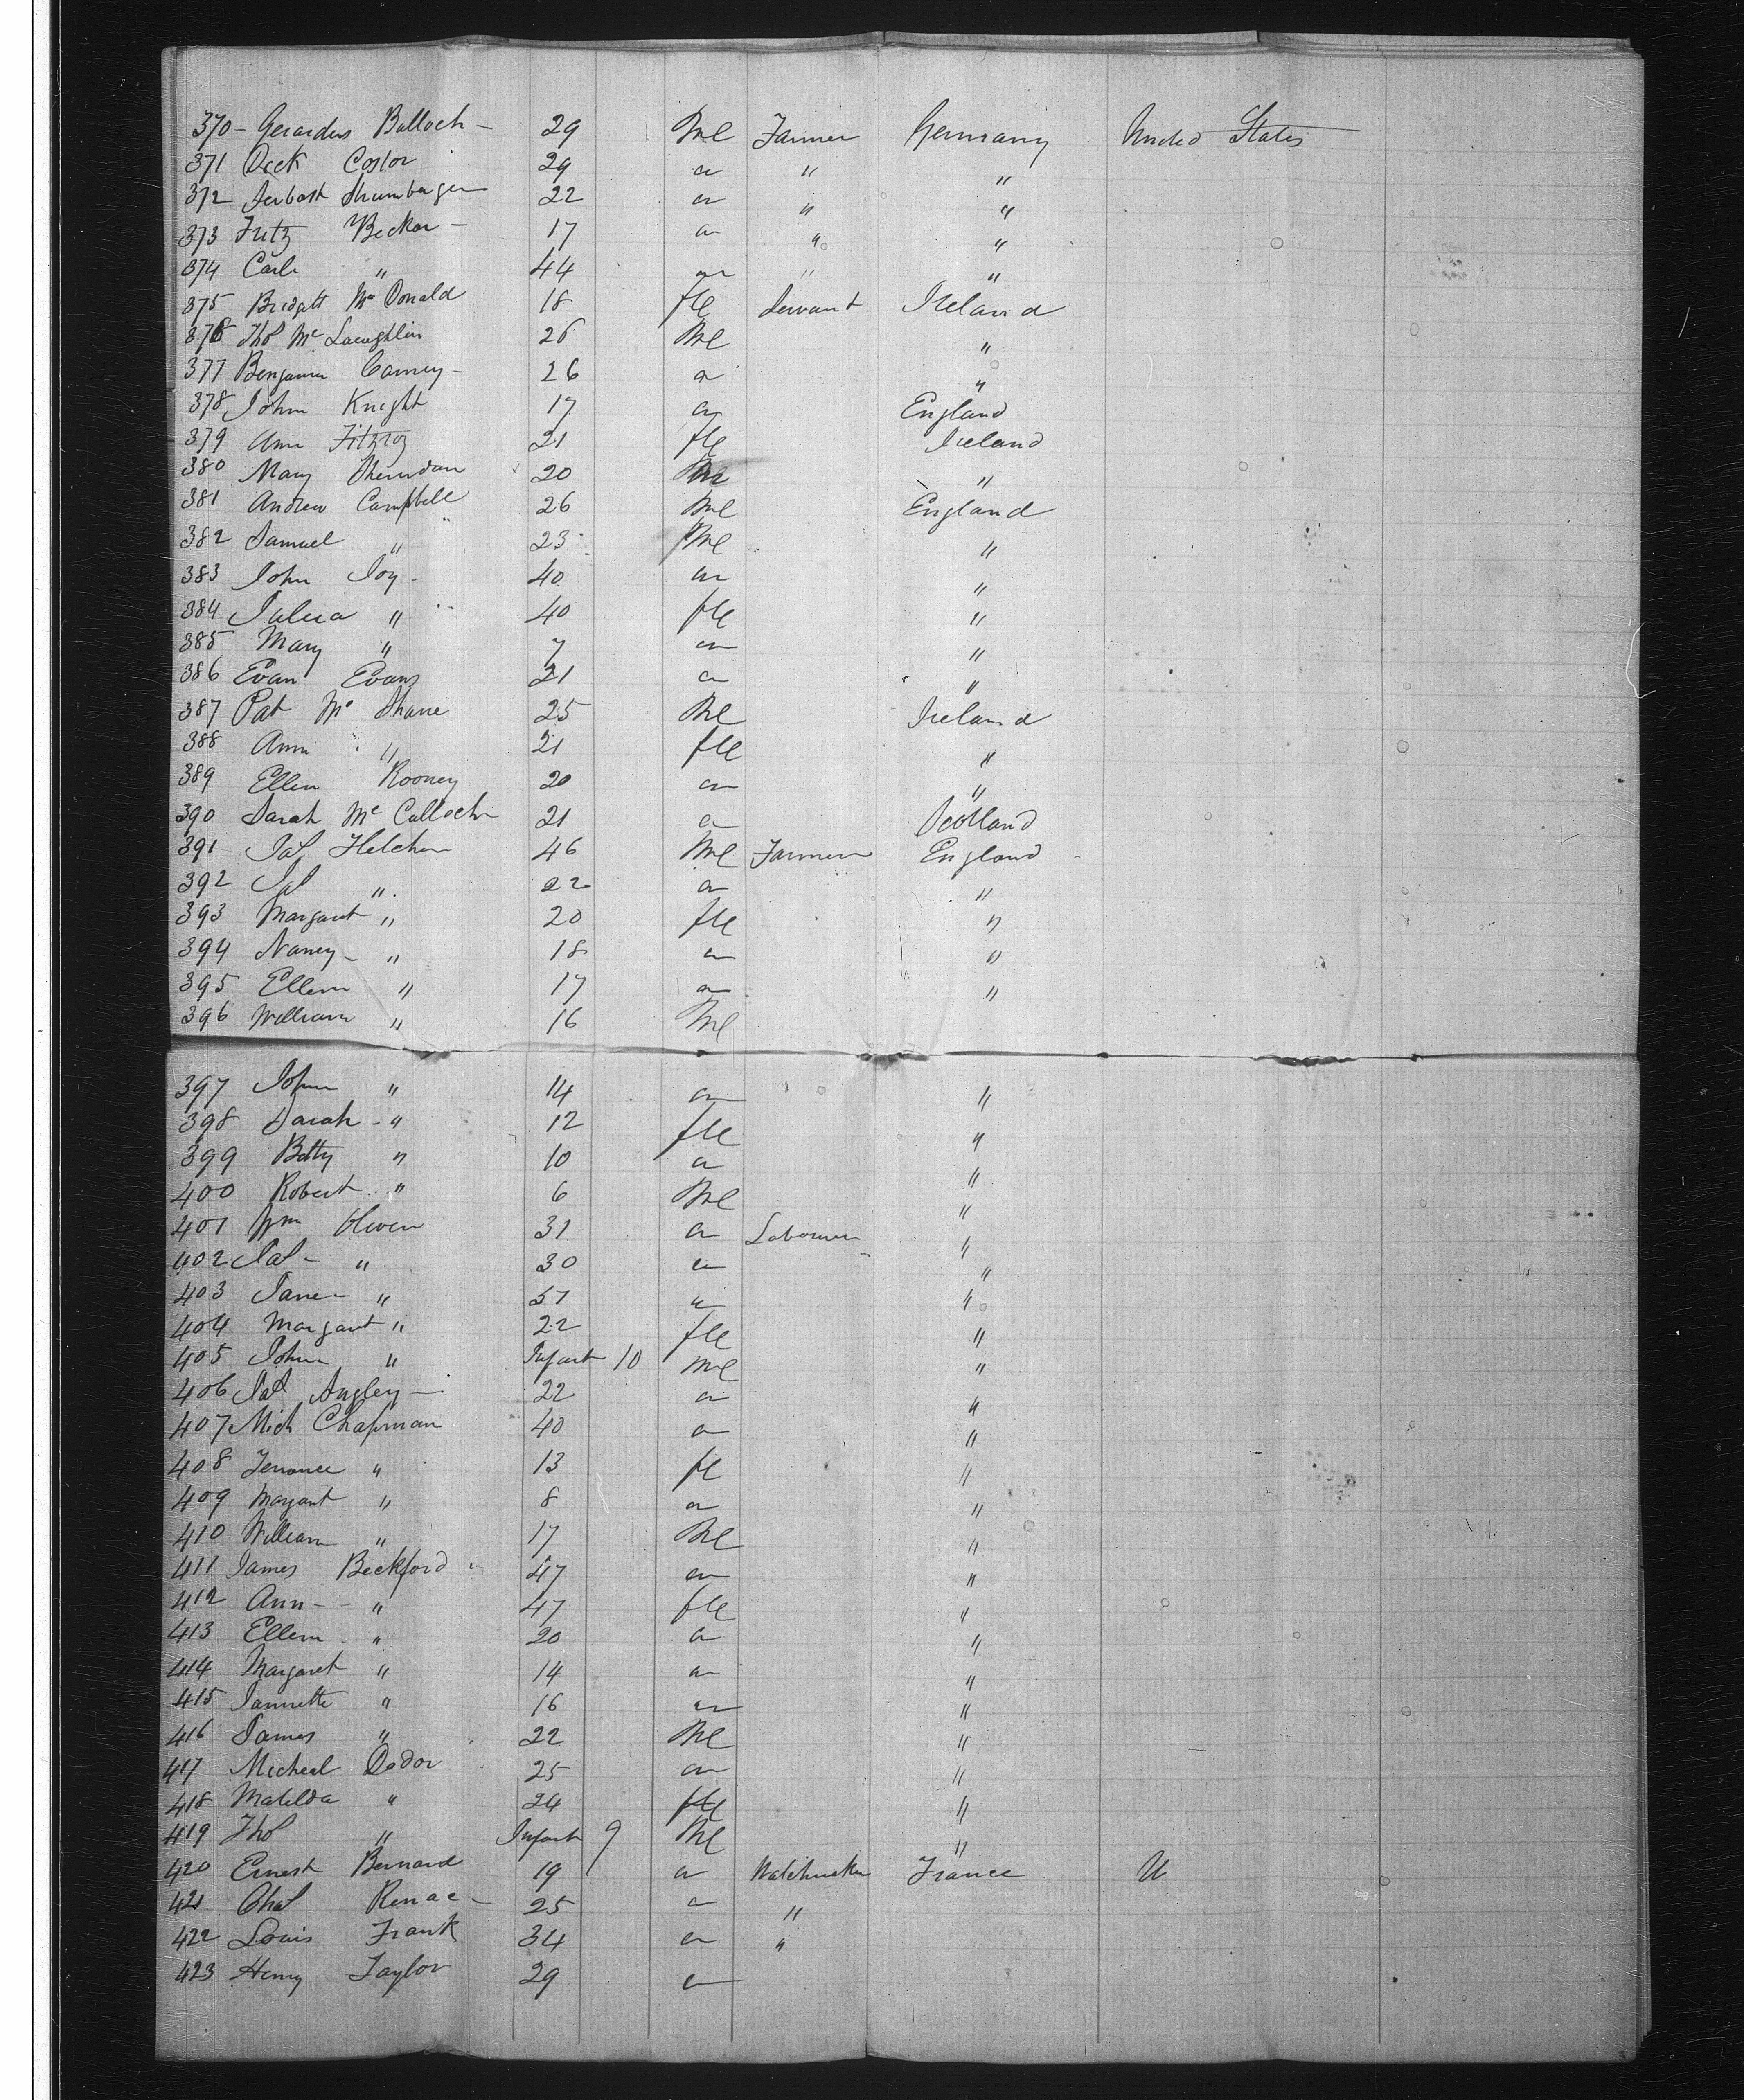 370 - Gerardus Balloch - 29 Ml Farmer Germany United States
371 Dick Costor 29 " " "
372 22 " " "
373 Fritz Becker - 17 " " "
374 Carl " 44 " " "
375 Bridgett McDonald 18 fle Servant Ireland
376 Thos McLaughlin 26 Ml "
377 Benjamin Carney - 26 " "
378 John Knight 17 " England
379 Ann Fitzroy 21 fle Ireland
380 Mary Sheridan 20 "
381 Andrew Campbell 26 Ml England
382 Samuel " 23 Ml "
383 John Joy - 40 " "
384 Julia " 40 fle "
385 Mary " 7 " "
386 Evan Evans 21 " "
387 Pat McShane 25 Ml Ireland
388 Ann " 21 fle "
389 Ellen Rooney 20 " "
390 Sarah McCulloch 21 " Scotland
391 Jas 46 Ml Farmer England
392 Jas " 22 " "
393 Margaret " 20 fle "
394 Nancy - " 18 " "
395 Ellen " 17 " "
396 William " 16 Ml
397 John " 14 " "
398 Sarah - " 12 fle "
399 Betty " 10 " "
400 Robert " 6 Ml "
401 Wm Oliver 31 " Labourer "
402 Jas - " 30 " "
403 Jane - " " "
404 Margaret " 22 fle "
405 John " Infant 10 Ml "
406 Jas Angley - 22 " "
407 Mich Chapman 40 " "
408 " 13 fl "
409 Margaret " 8 " "
410 William " 17 Ml "
411 James Beckford 47 " "
412 Ann - - " 47 fle "
413 Ellen " 20 " "
414 Margaret " 14 " "
415 Jannette " 16 " "
416 James " 22 Ml "
417 Micheal Dodor 25 " "
418 Matilda " 24 fle "
419 Thos " Infant 9 Ml "
420 Ernest Bernard 19 " Watchmaker France U
421 Chas Renae - 25 " "
422 Louis Frank 34 " "
423 Henry Taylor 29 "